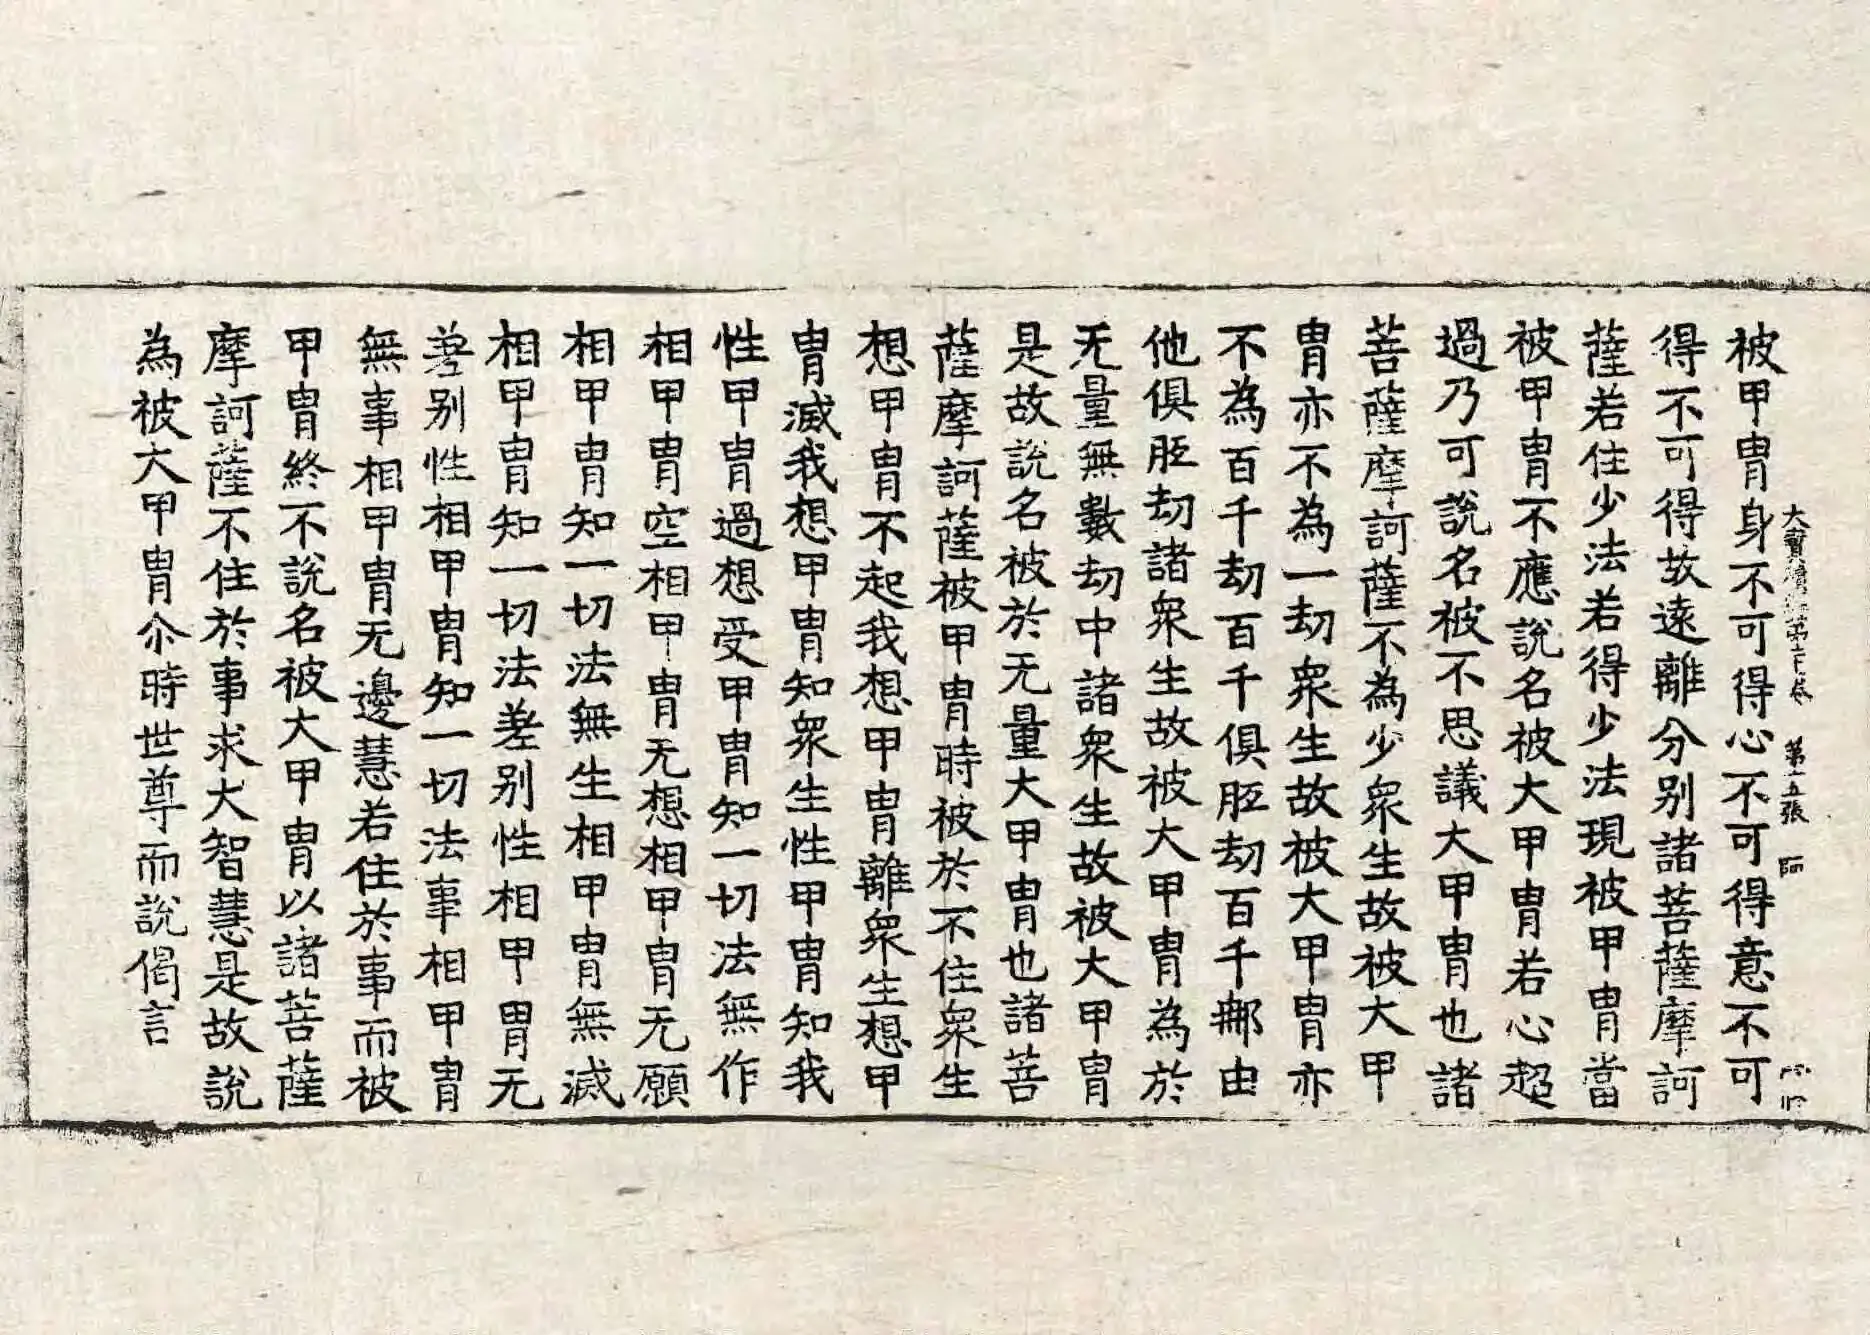 被甲胄身不可得心不可得意不可
得不可得故遠離分別諸菩薩摩訶
薩若住少法若得少法現被甲胄當
被甲胄不應說名被大甲胄若心超
過乃可說名被不思議大甲胄也諸
菩薩摩訶薩不為少衆生故被大甲
胄亦不為一劫衆生故被大甲胄亦
不為百千劫百千俱胝劫百千那由
他俱胝劫諸衆生故被大甲胄為於
无量無數劫中諸衆生故被大甲胄
是故說名被於无量大甲胄也諸菩
薩摩訶薩被甲胄時被於不住衆生
想甲胄不起我想甲胄離衆生想甲
胄滅我想甲胄知衆生性甲胄知我
性甲胄過想受甲胄知一切法無作
相甲胄空相甲胄无想相甲胄无願
相甲胄知一切法無生相甲胄無滅
相甲胄知一切法差别性相甲胄无
差别性相甲胄知一切法事相甲胄
無事相甲胄无邊慧若住於事而被
甲胄終不說名被大甲胄以諸菩薩
摩訶薩不住於事求大智慧是故說
為被大甲胄尒時世尊而說偈言
大寶積經第 卷 第五張 師